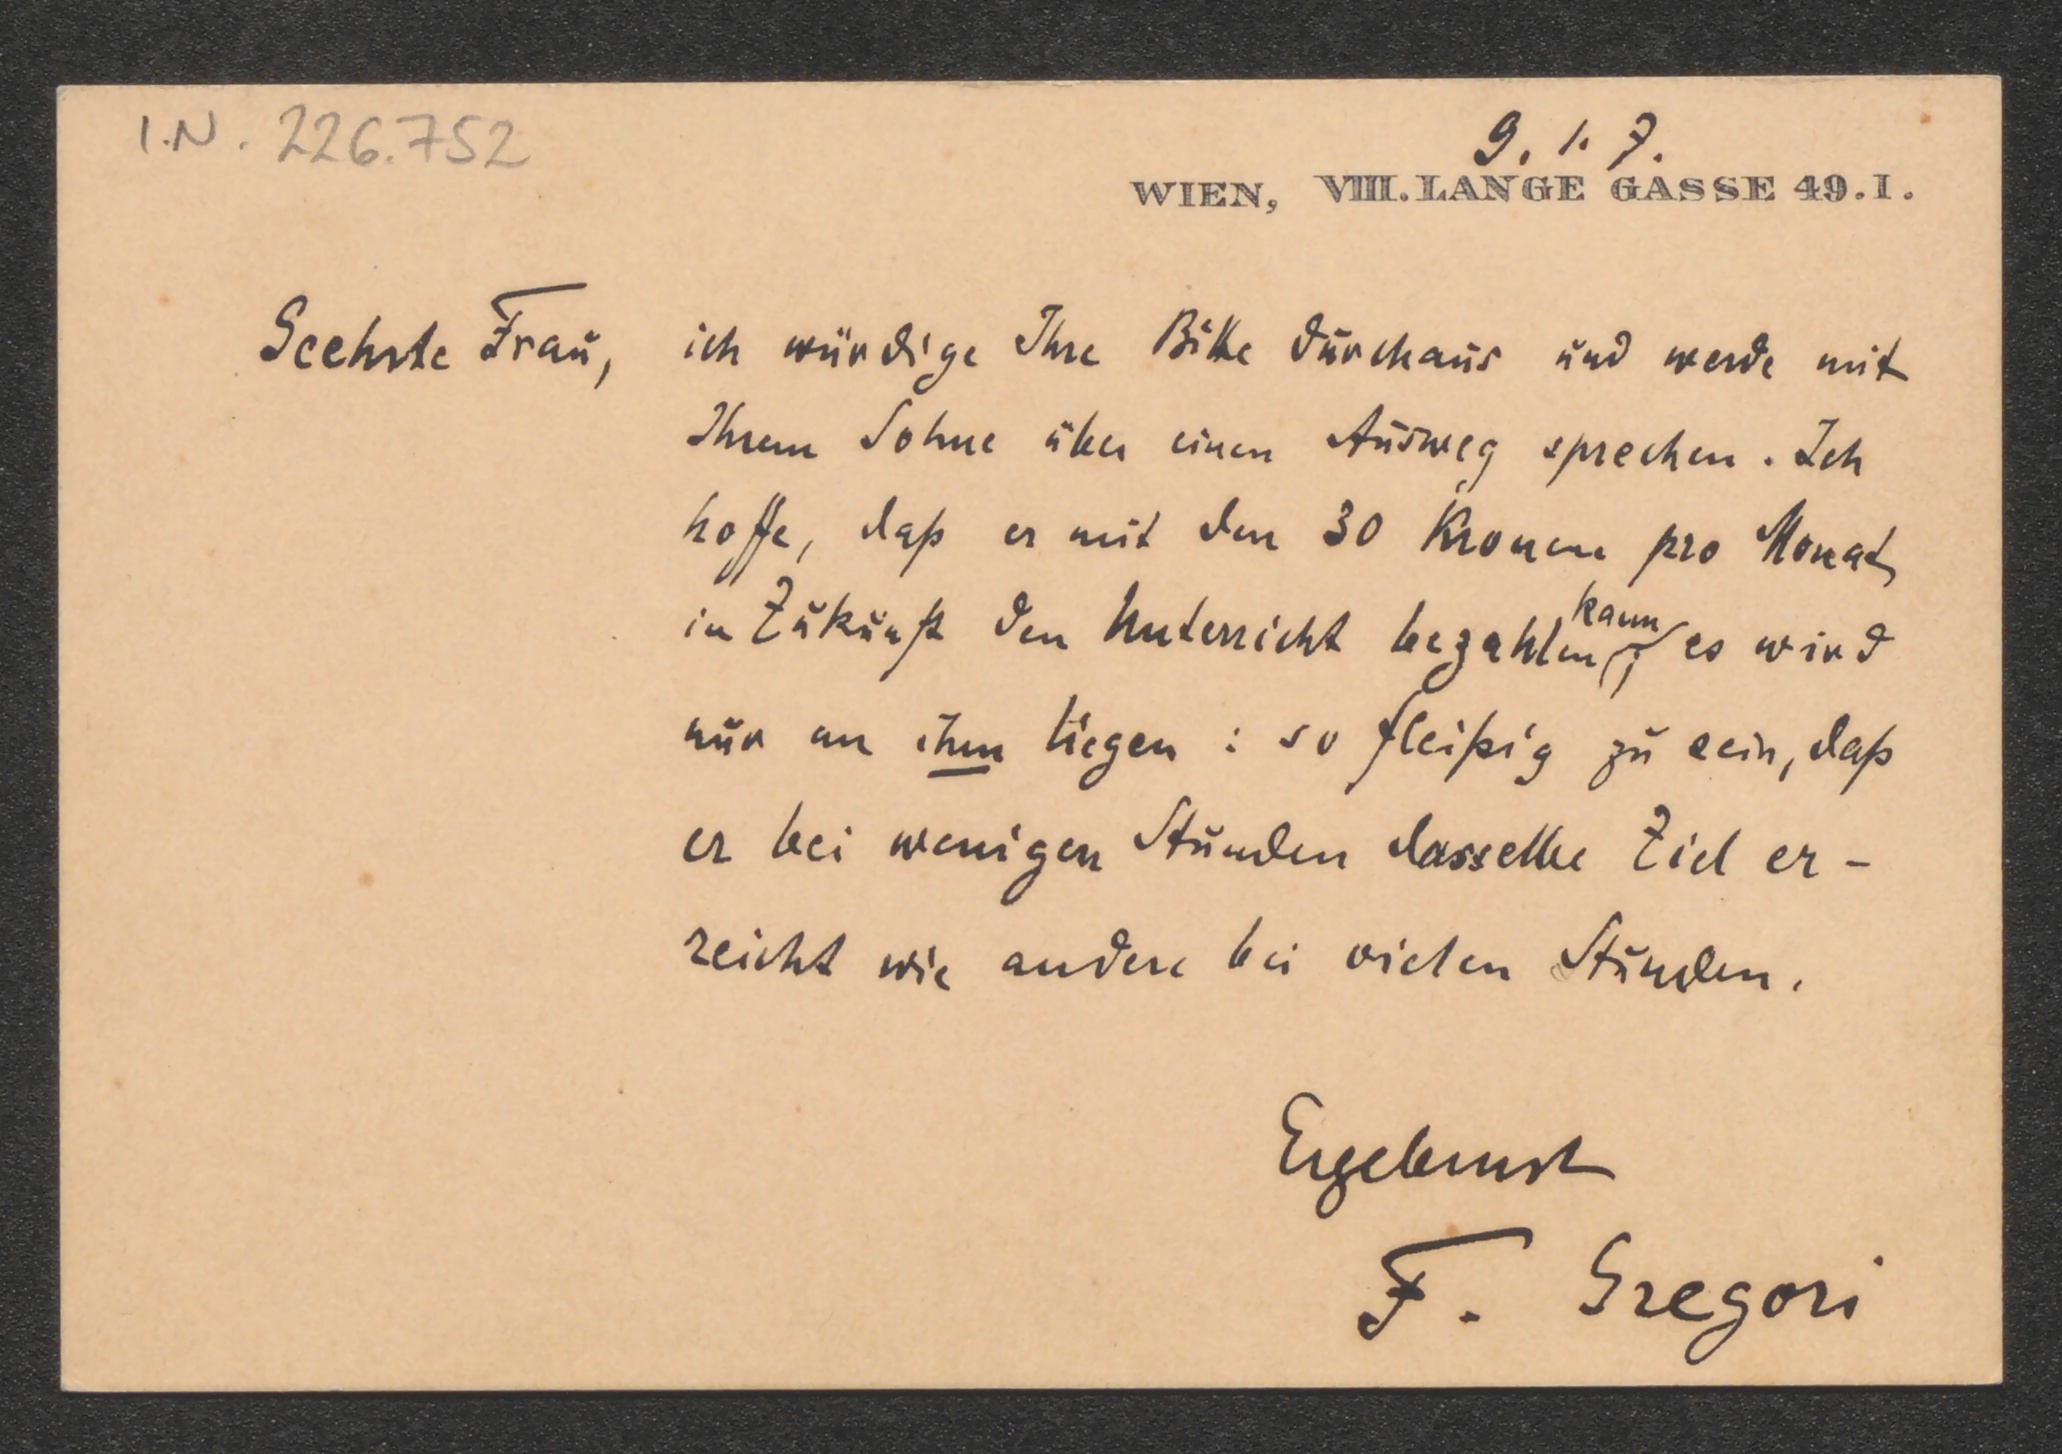 I.N. 226.752
9. 1. 7.
WIEN, VIII. LANGE GASSE 49. I.
Geehrte Frau, ich würdige Ihre Bitte durchaus und werde mit
Ihrem Sohne über einen Ausweg sprechen. Ich
hoffe, daß er mit den 30 Kronen pro Monat
in Zukunft den Unterricht bezahlen kann; es wird
nur an ihm liegen: so fleißig zu sein, daß
er bei wenigen Stunden dasselbe Ziel er-
reicht wie andere bei vielen Stunden.
Ergebenst
F. Gregori